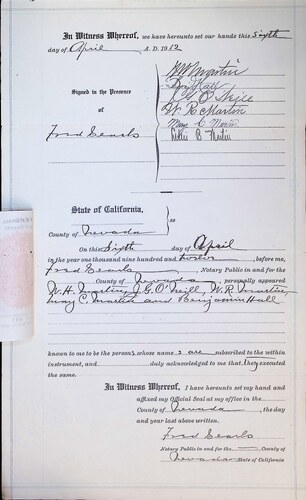 In Witness Whereof, we have hereunto set our hands this Sixth
day of April A. D. 1912
W H Martin
Signed in the Presence
of
J G O'Neill
W. R. Martin
Fred Searls
Mary C Martin
State of California,
ss
County of Nevada
On this Sixth day of April
in the year one thousand nine hundred and before me,
Fred Searls Notary Public in and for the
County of Nevada personally appeared
W. H. Martin, J. G. O'Neill, W. R. Martin,
Mary C. Martin and Benjamin Hall
known to me to be the persons, whose name s are subscribed to the within
instrument, and duly acknowledged to me that they executed
the same.
In Witness Whereof, I have hereunto set my hand and
affixed my Official Seal at my office in the
County of Nevada, the day
and year last above written.
Fred Searls
Notary Public in and for the County of
Nevada State of California